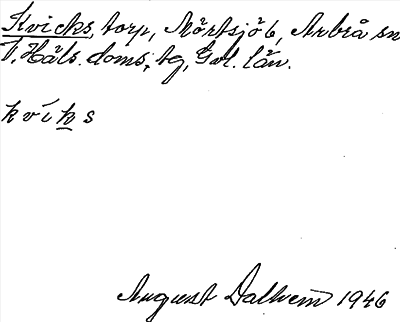 Kvicks, torp, Mörtsjöb, Arbrå sn
V. Häls. doms. tg, Gvl. län.
kviks
August Dalhem 1946